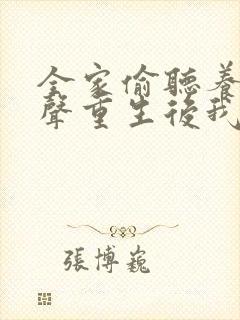 全家偷聽養
聲重生後我
張博巍